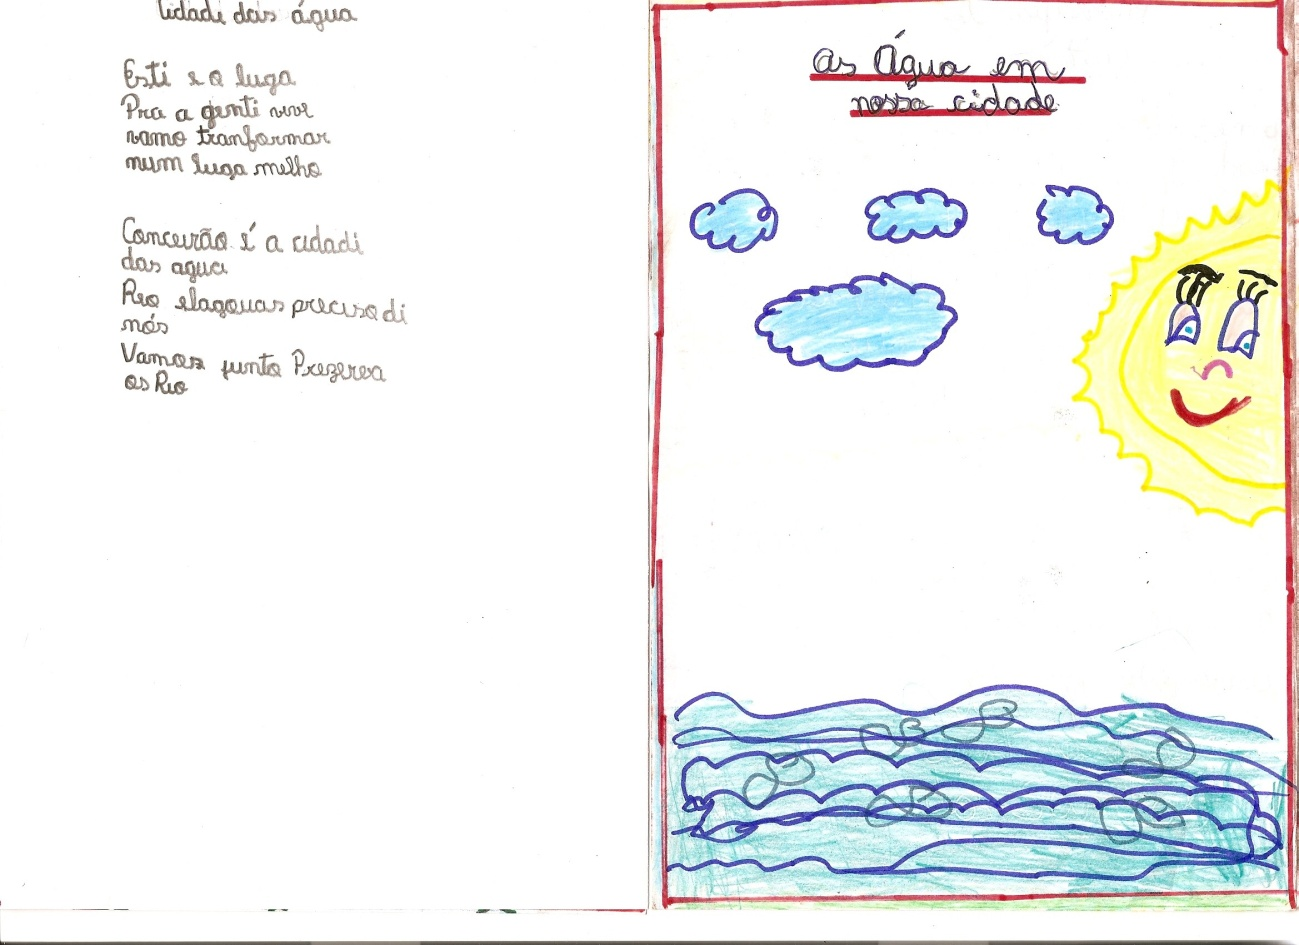 Cidadi das água
Esti e o luga
Pra a genti vive
vamo tranformar
num luga melho
Conceirão É a cidadi
das agua
Rio elagouas precisa di
nós
Vamos junto Prezerva
os Rio
As Água em
nossa cidade